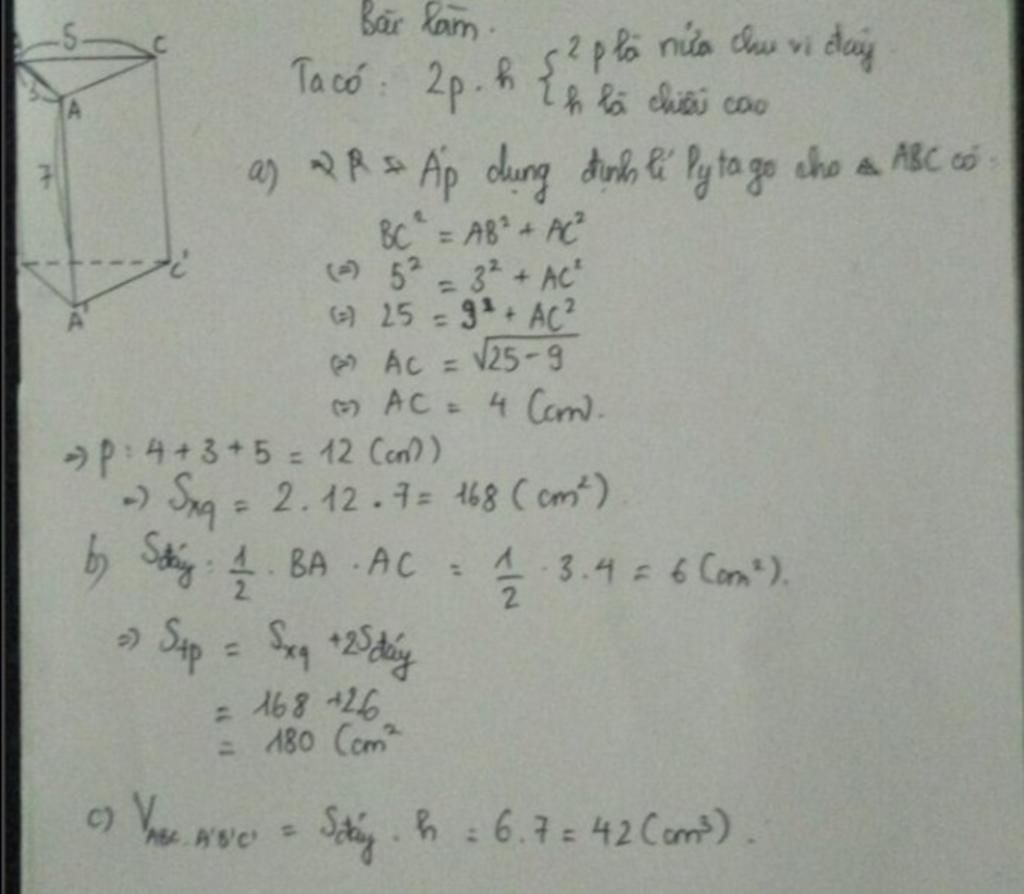 Bài làm.
5 C
Ta có: 2p.h { 2p là nửa chu vi đáy
h là chiều cao
3 A
7
a) Áp dụng định lí Pytago cho △ ABC có:
BC² = AB² + AC²
(=) 5² = 3² + AC²
C'
(=) 25 = 9² + AC²
A'
(=) AC = √25-9
(=) AC = 4 (cm).
=) P: 4 + 3 + 5 = 12 (cm))
=) Sxq = 2.12.7 = 168 (cm²)
b) Sđáy: 1/2 . BA . AC = 1/2 . 3.4 = 6 (cm²).
=) Stp = Sxq +2Sđáy
= 168 +26
= 180 (cm²
c) VABC.A'B'C' = Sđáy . h = 6.7 = 42 (cm³).